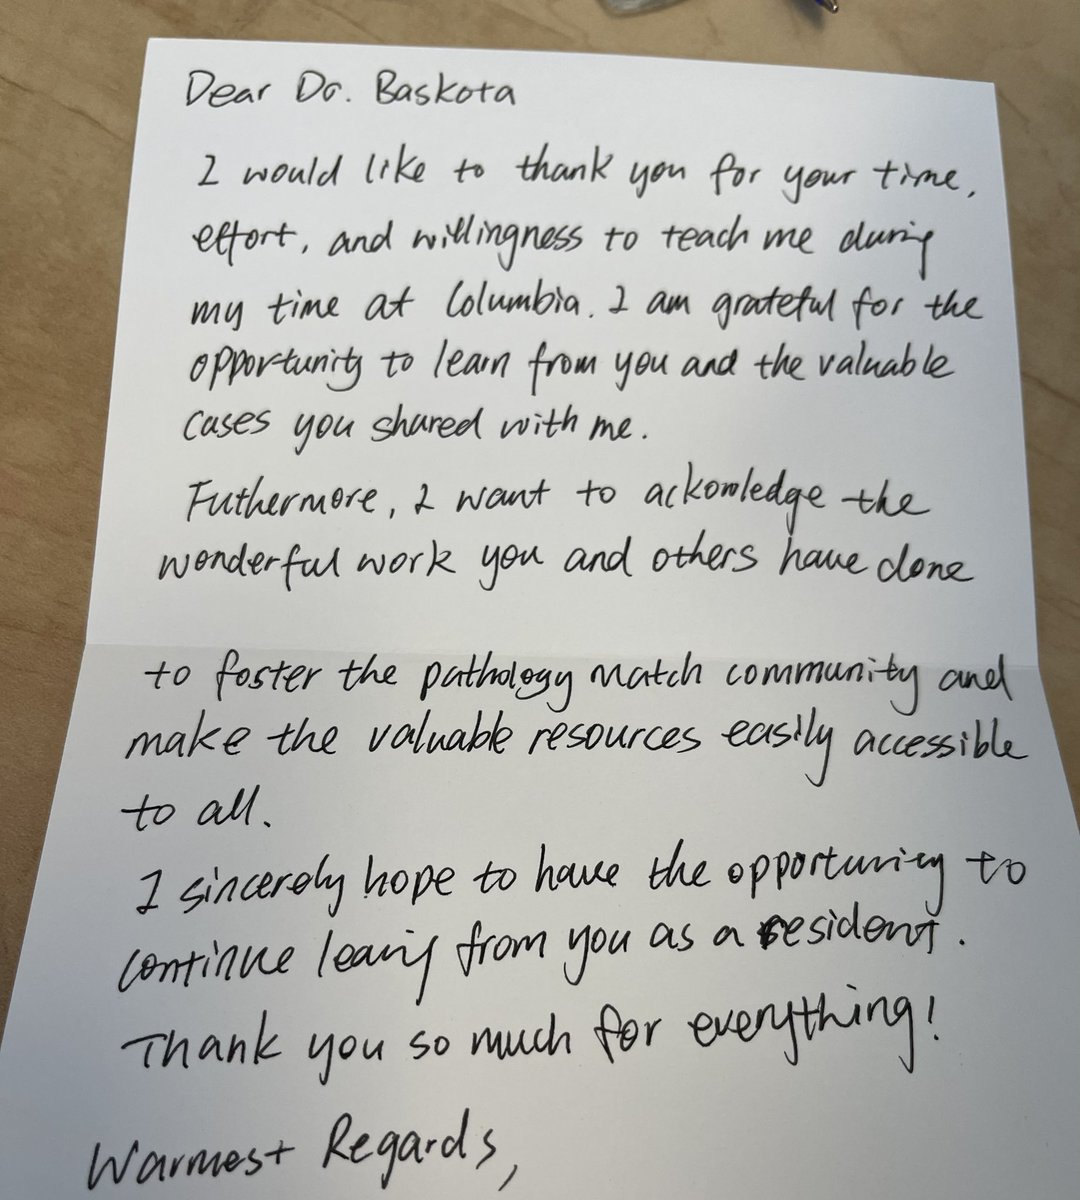 Dear Dr. Baskota
I would like to thank you for your time,
effort, and willingness to teach me during
my time at Columbia. I am grateful for the
opportunity to learn from you and the valuable
cases you shared with me.
Futhermore, I want to ackowledge the
wonderful work you and others have done
to foster the pathology match community and
make the valuable resources easily accessible
to all.
I sincerely hope to have the opportunity to
continue learing from you as a resident.
Thank you so much for everything!
Warmest Regards,